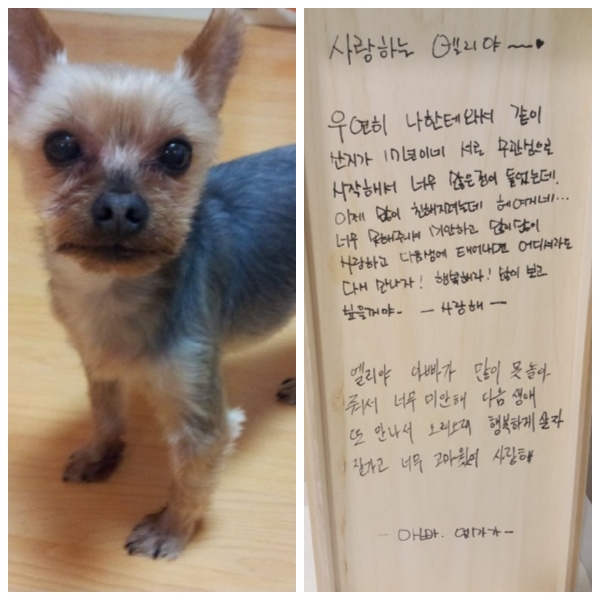 사랑하는 엘리야~♥
우연히 나한테 와서 같이
산지가 17년이네 서로 무관심으로
시작해서 너무 많은 정이 들었는데.
이제 많이 친해지려는데 헤어지네...
너무 못해줘서 미안하고 많이많이
사랑하고 다음생에 태어나면 어디서라도
다시 만나자! 행복해라! 많이 보고
싶을꺼야- - 사랑해 -
엘리야 아빠가 많이 못 놀아
줘서 너무 미안해 다음 생에
또 만나서 오래오래 행복하게 살자
잘가고 너무 고마웠어 사랑해
- 아빠. 엄마가 -